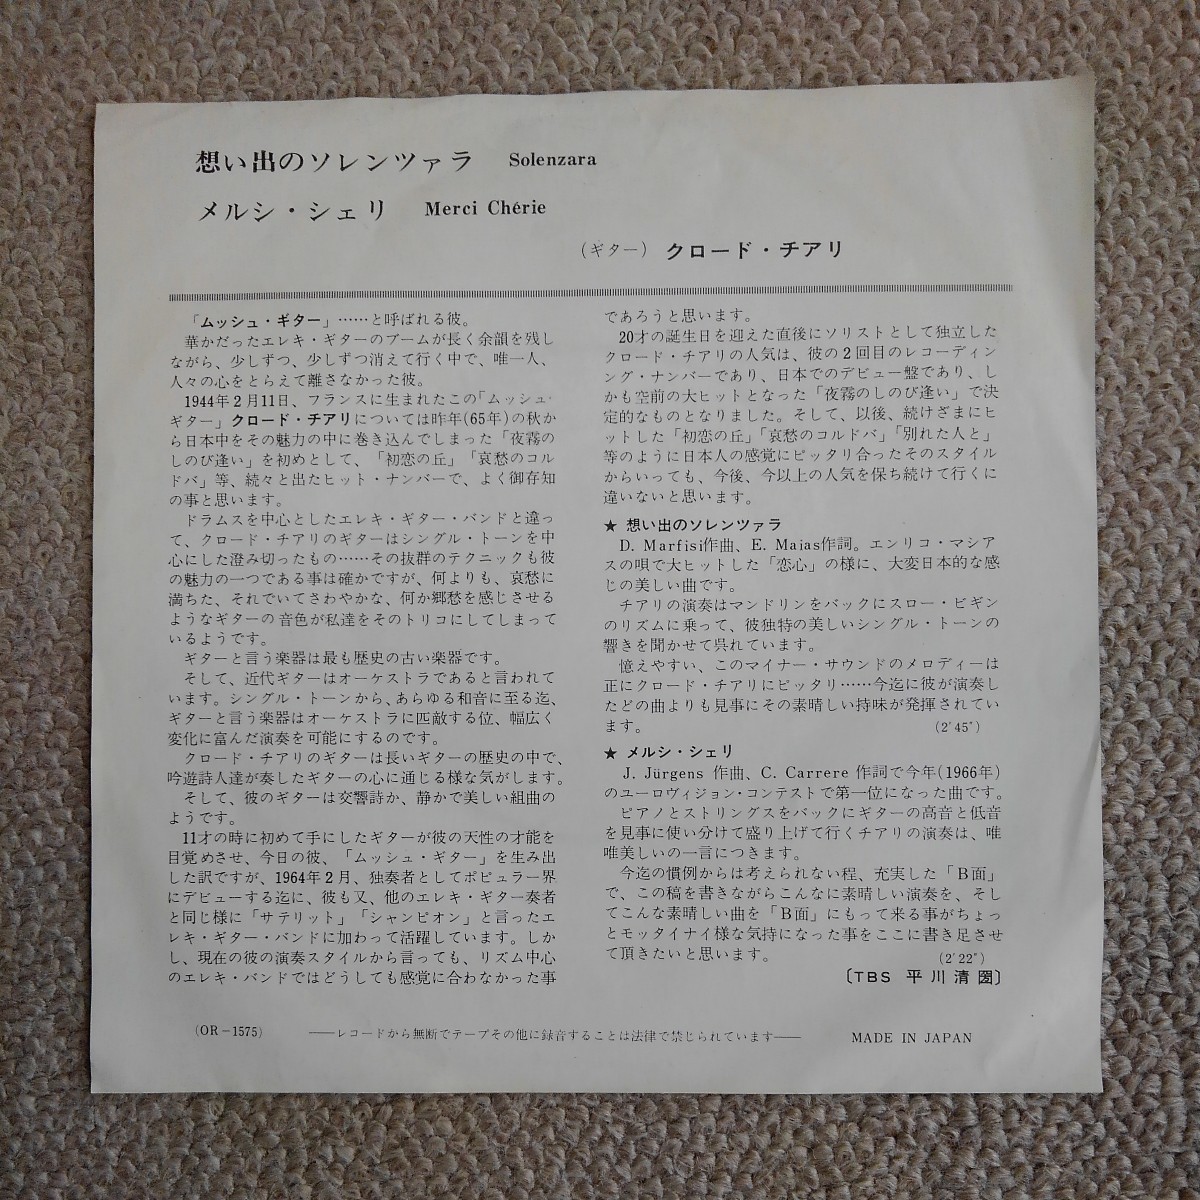 想い出のソレンツァラ Solenzara
メルシ・シェリ Merci Chérie
(ギター) クロード・チアリ
「ムッシュ・ギター」……と呼ばれる彼。
華かだったエレキ・ギターのブームが長く余韻を残し
ながら、少しずつ、少しずつ消えて行く中で、唯一人、
人々の心をとらえて離さなかった彼。
1944年2月11日、フランスに生まれたこの「ムッシュ・
ギター」クロード・チアリについては昨年(65年)の秋か
ら日本中をその魅力の中に巻き込んでしまった「夜霧の
しのび逢い」を初めとして、「初恋の丘」「哀愁のコル
ドバ」等、続々と出たヒット・ナンバーで、よく御存知
の事と思います。
ドラムスを中心としたエレキ・ギター・バンドと違っ
て、クロード・チアリのギターはシングル・トーンを中
心にした澄み切ったもの……その抜群のテクニックも彼
の魅力の一つである事は確かですが、何よりも、哀愁に
満ちた、それでいてさわやかな、何か郷愁を感じさせる
ようなギターの音色が私達をそのトリコにしてしまって
いるようです。
ギターと言う楽器は最も歴史の古い楽器です。
そして、近代ギターはオーケストラであると言われて
います。シングル・トーンから、あらゆる和音に至る迄、
ギターと言う楽器はオーケストラに匹敵する位、幅広く
変化に富んだ演奏を可能にするのです。
クロード・チアリのギターは長いギターの歴史の中で、
吟遊詩人達が奏したギターの心に通じる様な気がします。
そして、彼のギターは交響詩か、静かで美しい組曲の
ようです。
11才の時に初めて手にしたギターが彼の天性の才能を
目覚めさせ、今日の彼、「ムッシュ・ギター」を生み出
した訳ですが、1964年2月、独奏者としてポピュラー界
にデビューする迄に、彼も又、他のエレキ・ギター奏者
と同じ様に「サテリット」「シャンピオン」と言ったエ
レキ・ギター・バンドに加わって活躍しています。しか
し、現在の彼の演奏スタイルから言っても、リズム中心
のエレキ・バンドではどうしても感覚に合わなかった事
であろうと思います。
20才の誕生日を迎えた直後にソリストとして独立した
クロード・チアリの人気は、彼の2回目のレコーディン
ング・ナンバーであり、日本でのデビュー盤であり、し
かも空前の大ヒットとなった「夜霧のしのび逢い」で決
定的なものとなりました。そして、以後、続けざまにヒ
ットした「初恋の丘」「哀愁のコルドバ」「別れた人と」
等のように日本人の感覚にピッタリ合ったそのスタイル
からいっても、今後、今以上の人気を保ち続けて行くに
違いないと思います。
★ 想い出のソレンツァラ
D. Marfisi作曲、E. Maias作詞。エンリコ・マシア
スの唄で大ヒットした「恋心」の様に、大変日本的な感
じの美しい曲です。
チアリの演奏はマンドリンをバックにスロー・ビギン
のリズムに乗って、彼独特の美しいシングル・トーンの
響きを聞かせて呉れています。
憶えやすい、このマイナー・サウンドのメロディーは
正にクロード・チアリにピッタリ……今迄に彼が演奏し
たどの曲よりも見事にその素晴しい持味が発揮されてい
ます。 (2′45″)
★ メルシ・シェリ
J. Jürgens 作曲、C. Carrere 作詞で今年(1966年)
のユーロヴィジョン・コンテストで第一位になった曲です。
ピアノとストリングスをバックにギターの高音と低音
を見事に使い分けて盛り上げて行くチアリの演奏は、唯
唯美しいの一言につきます。
今迄の慣例からは考えられない程、充実した「B面」
で、この稿を書きながらこんなに素晴しい演奏を、そし
てこんな素晴しい曲を「B面」にもって来る事がちょっ
とモッタイナイ様な気持になった事をここに書き足させ
て頂きたいと思います。 (2′22″)
〔TBS 平川清圀〕
(OR-1575) ――レコードから無断でテープその他に録音することは法律で禁じられています―― MADE IN JAPAN